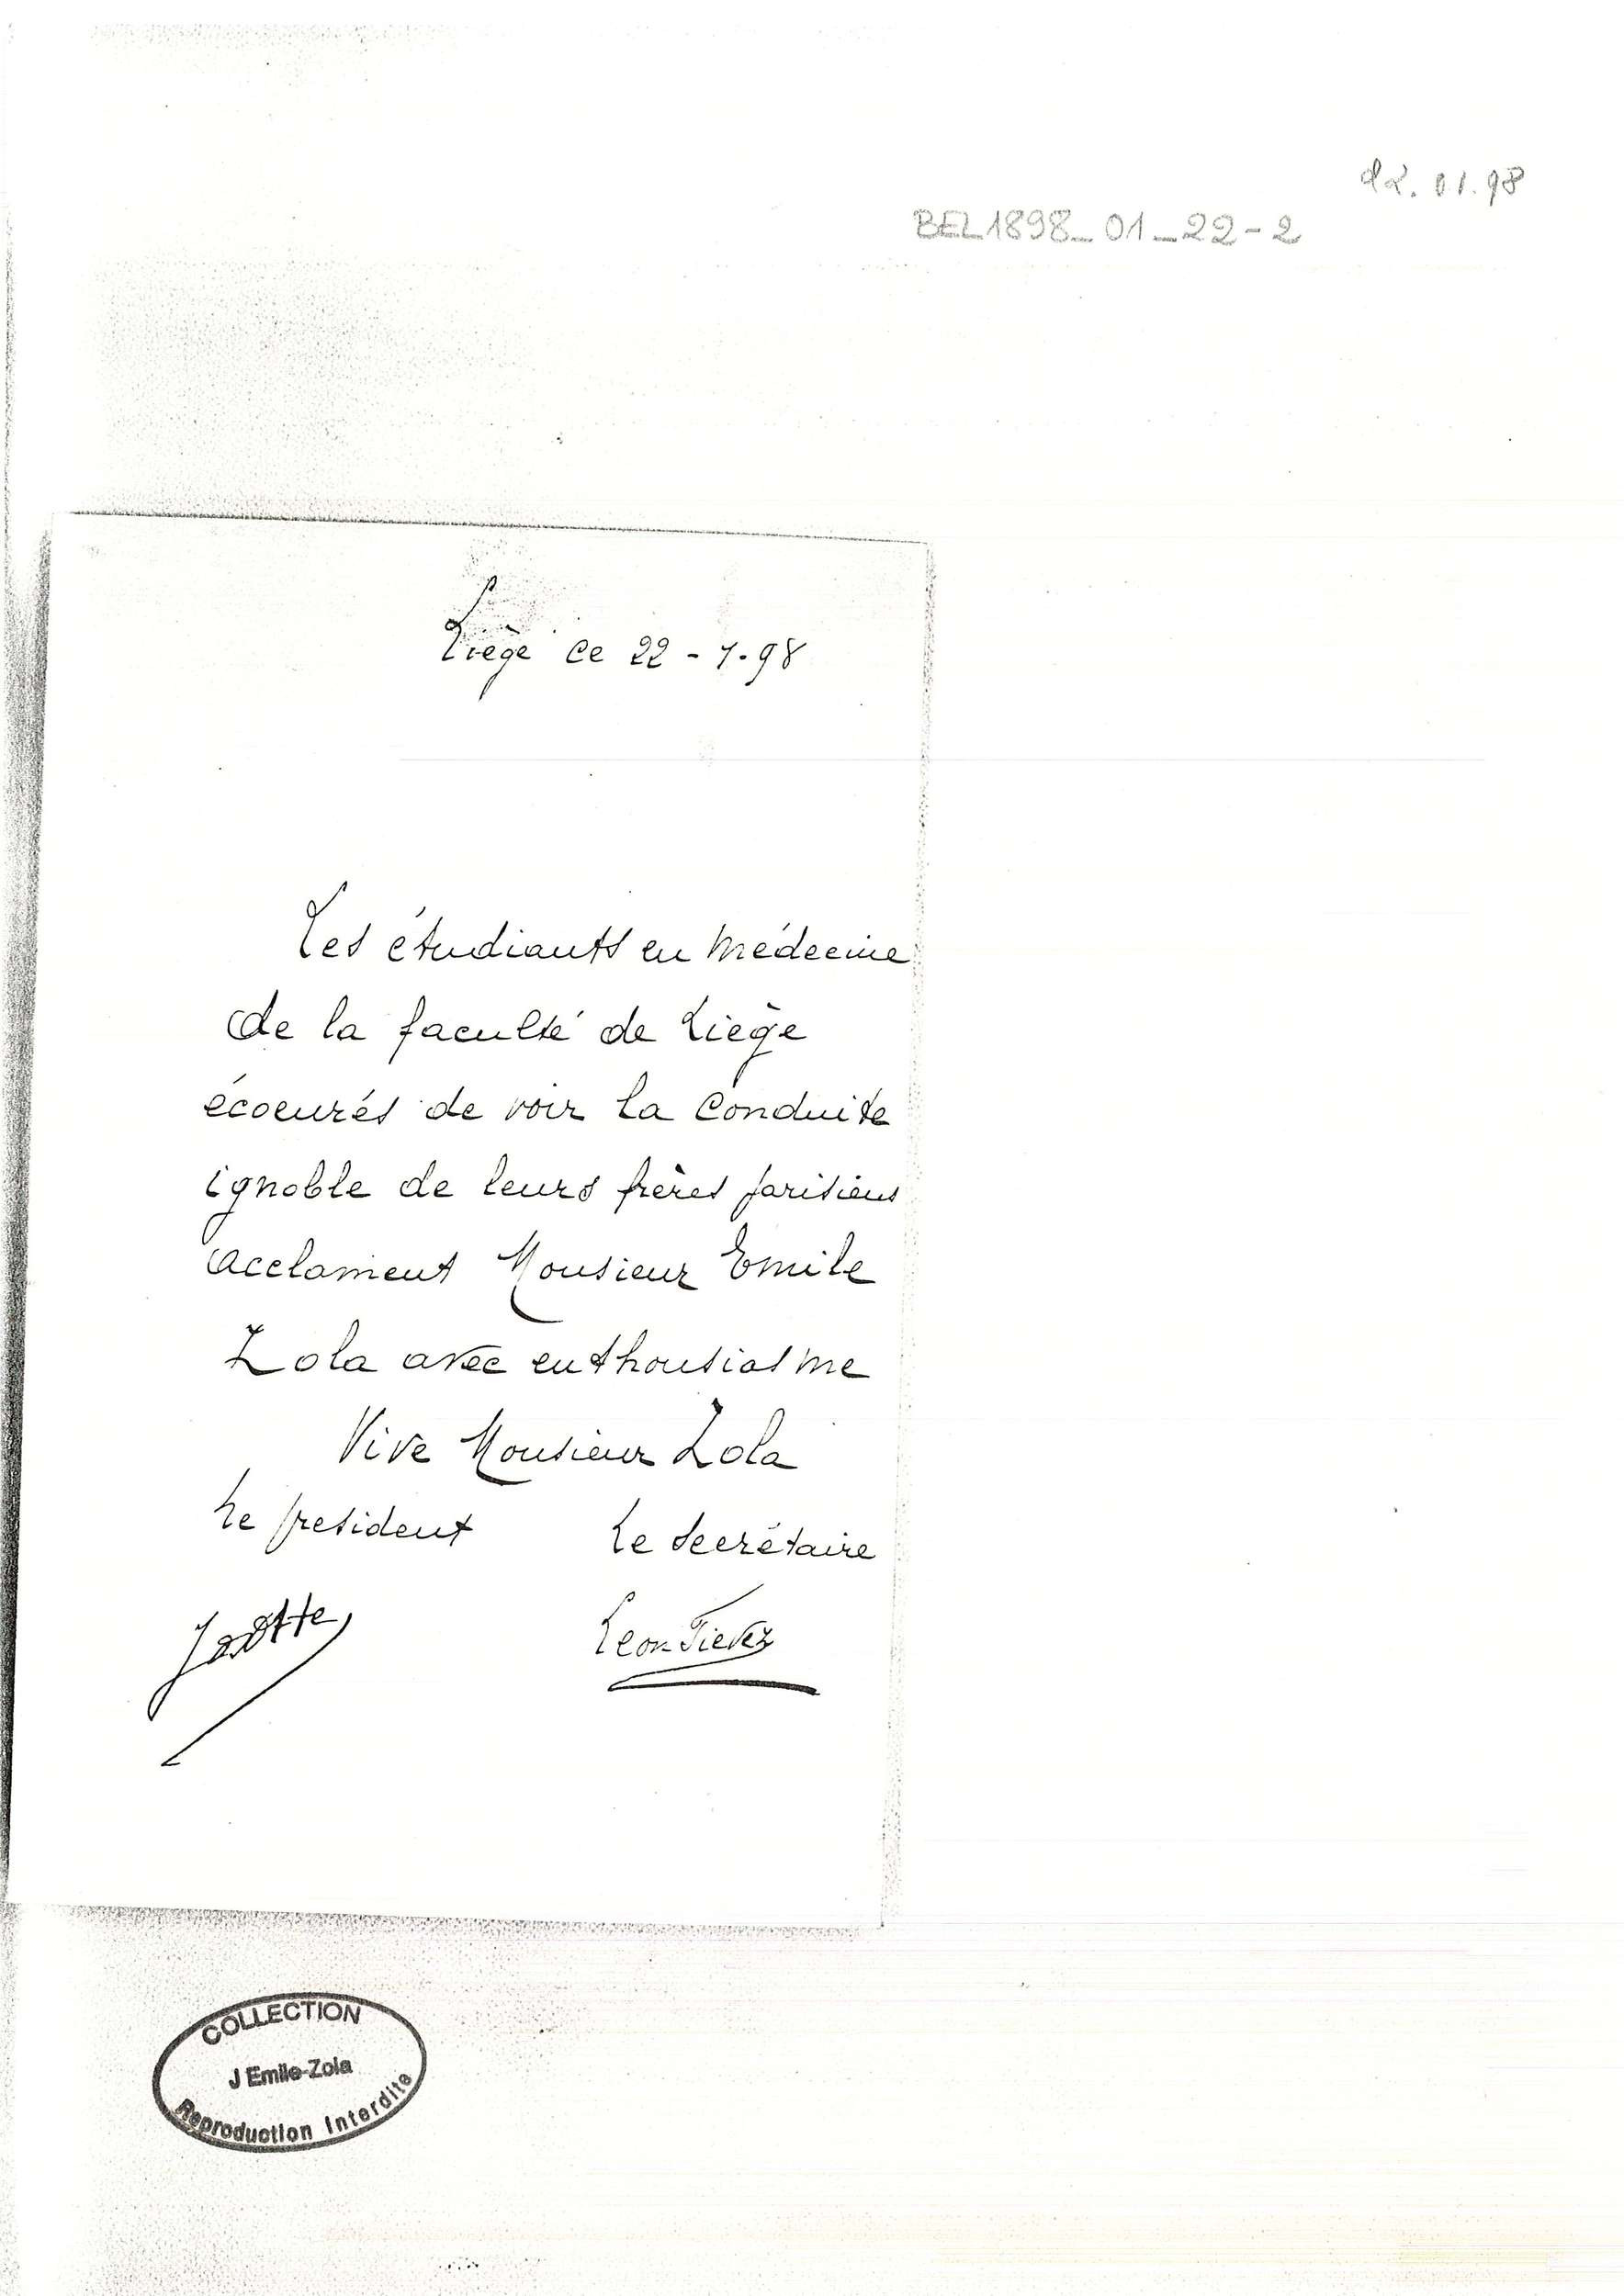 22.01.98
BEL1898_01_22-2
Liège ce 22-1.98
Les étudiants en médecine
de la faculté de Liège
écoeurés de voir la conduite
ignoble de leurs frères parisiens
acclament Monsieur Emile
Zola avec enthousiasme
Vive Monsieur Zola
Le president Le Secrétaire
Leon Fievez
COLLECTION
J Emile-Zola
Reproduction Interdite